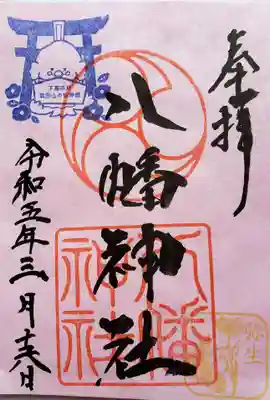 奉拝
八幡神社
令和五年三月十六日
八幡
神社
弥生